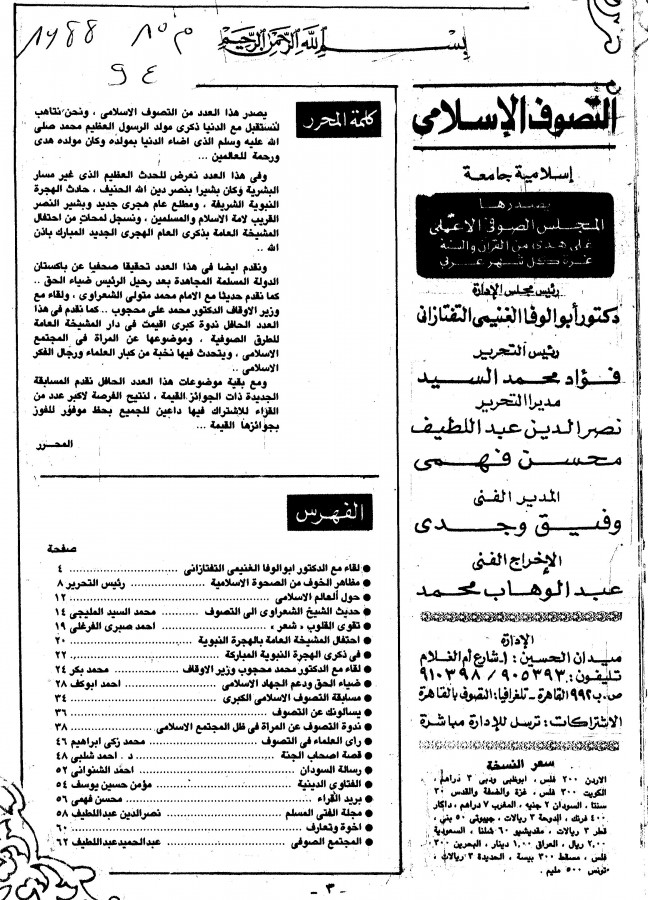 بسم الله الرحمن الرحيم
التصوف الإسلامى
إسلامية جامعة
يصدرها
المجلس الصوفى الأعلى
على هدى من القرآن والسنة
غرة كل شهر عربى
رئيس مجلس الإدارة
دكتور أبو الوفا الغنيمى التفتازانى
رئيس التحرير
فؤاد محمد السيد
مديرا التحرير
نصر الدين عبد اللطيف
محسن فهمى
المدير الفنى
وفيق وجدى
الإخراج الفنى
عبد الوهاب محمد
الإدارة
ميدان الحسين : ١ شارع أم الغلام
تليفون : ٩٠٥٣٩٣ / ٩١٠٣٩٨
ص.ب ٩٩٢ القاهرة - تلغرافيا: التصوف بالقاهرة
الاشتراكات : ترسل للإدارة مباشرة
سعر النسخة
الاردن ٢٠٠ فلس ، ابوظبى ودبى ٣ دراهم ،
الكويت ٣٠٠ فلس ، غزة والضفة والقدس ٣٠
سنتا ، السودان ٢ جنيه ، المغرب ٧ دراهم ، داكار
٤٠٠ فرنك ، الدوحة ٣ ريالات ، جيبوتى ٥٠ بنى ،
قطر ٣ ريالات ، مقديشيو ٦٠ شلنا ، السعودية
٢,٠٠ ريال ، العراق ١,٠٠ دينار ، البحرين ٣٠٠
فلس ، مسقط ٣٠٠ بيسة ، الحديدة ٣ ريالات ،
تونس ٥٠٠ مليم .
كلمة المحرر
يصدر هذا العدد من التصوف الاسلامى ، ونحن نتاهب
لنستقبل مع الدنيا ذكرى مولد الرسول العظيم محمد صلى
الله عليه وسلم الذى اضاء الدنيا بمولده وكان مولده هدى
ورحمة للعالمين ...
وفى هذا العدد نعرض للحدث العظيم الذى غير مسار
البشرية وكان بشيرا بنصر دين الله الحنيف ، حادث الهجرة
النبوية الشريفة ، ومطلع عام هجرى جديد وبشير النصر
القريب لامة الاسلام والمسلمين ، ونسجل لمحات من احتفال
المشيخة العامة بذكرى العام الهجرى الجديد المبارك باذن
الله ..
ونقدم ايضا فى هذا العدد تحقيقا صحفيا عن باكستان
الدولة المسلمة المجاهدة بعد رحيل الرئيس ضياء الحق ..
كما نقدم حديثا مع الامام محمد متولى الشعراوى ، ولقاء مع
وزير الاوقاف الدكتور محمد على محجوب .. كما نقدم فى هذا
العدد الحافل ندوة كبرى اقيمت فى دار المشيخة العامة
للطرق الصوفية ، وموضوعها عن المراة فى المجتمع
الاسلامى ، ويتحدث فيها نخبة من كبار العلماء ورجال الفكر
الاسلامى ..
ومع بقية موضوعات هذا العدد الحافل نقدم المسابقة
الجديدة ذات الجوائز القيمة ، لنتيح الفرصة لاكبر عدد من
القراء للاشتراك فيها داعين للجميع بحظ موفور للفوز
بجوائزها القيمة ...
المحرر
الفهرس
صفحة
● لقاء مع الدكتور ابوالوفا الغنيمى التفتازانى ٤
● مظاهر الخوف من الصحوة الاسلامية رئيس التحرير ٨
● حول العالم الاسلامى ١٢
● حديث الشيخ الشعراوى الى التصوف محمد السيد المليجى ١٤
● تقوى القلوب « شعر » احمد صبرى الفرغلى ١٩
● احتفال المشيخة العامة بالهجرة النبوية ٢٠
● فى ذكرى الهجرة النبوية المباركة ٢٢
● لقاء مع الدكتور محمد محجوب وزير الاوقاف محمد بكر ٢٤
● ضياء الحق ودعم الجهاد الاسلامى احمد ابوكف ٢٨
● مسابقة التصوف الاسلامى الكبرى ٣٤
● يسألونك عن التصوف ٣٦
● ندوة التصوف عن المراة فى ظل المجتمع الاسلامى ٣٨
● راى العلماء فى التصوف محمد زكى ابراهيم ٤٦
● قصة اصحاب الجنة د . احمد شلبى ٤٨
● رسالة السودان احمد الشنوانى ٥٢
● الفتاوى الدينية مؤمن حسين يوسف ٥٤
● بريد القراء محسن فهمى ٥٦
● مجلة الفتى المسلم نصرالدين عبداللطيف ٥٨
● اخوة وتعارف ٦٠
● المجتمع الصوفى عبدالحميد عبداللطيف ٦٢
- ٣ -